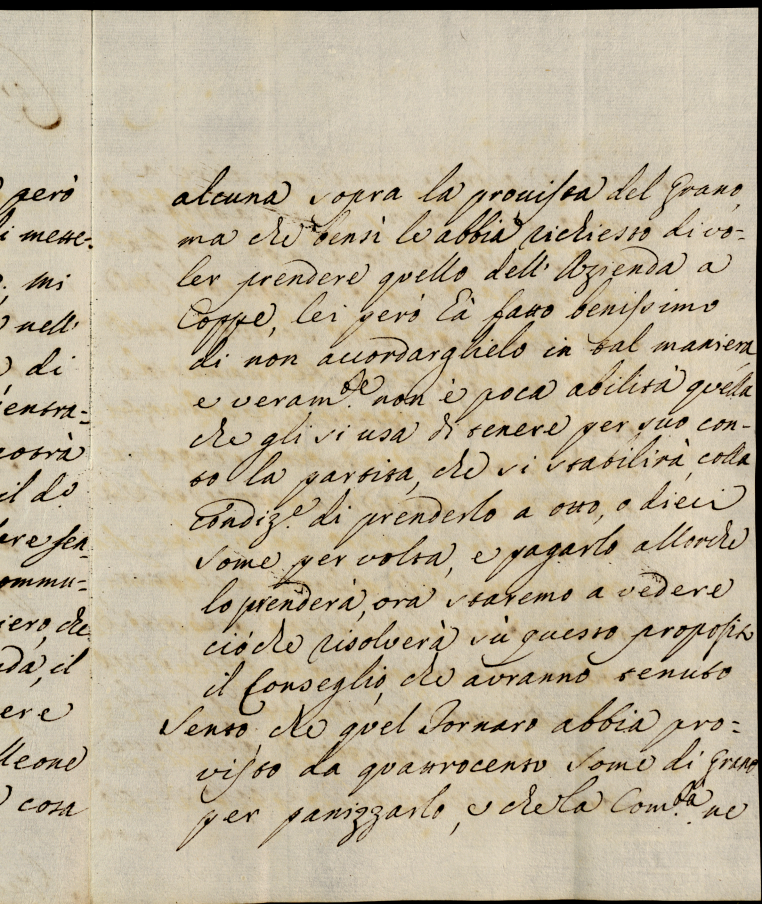 però
i mette-
mi
nell'
di
entra-
potrà
il dº
ere sen
ommu-
iero, che
da, il
ere
lleone
cosa
alcuna sopra la provista del Grano,
ma che bensì le abbia richiesto di vo=
ler prendere quello dell'Azienda a
Coppe, lei però hà fatto benissimo
di non accordarglielo in tal maniera
e veram.te non è poca abilità quella
che gli si usa di tenere per suo con-
to la partita, che si stabilirà, colla
condiz.e di prenderlo a otto, o dieci
some per volta, e pagarlo allorche
lo prenderà, ora staremo a vedere
ciò che risolverà sù questo proposito
il Conseglio, che avranno tenuto
Sento che quel Fornaro abbia pro=
visto da quattrocento some di Grano
per panizzarlo, e che la Com.tà ne